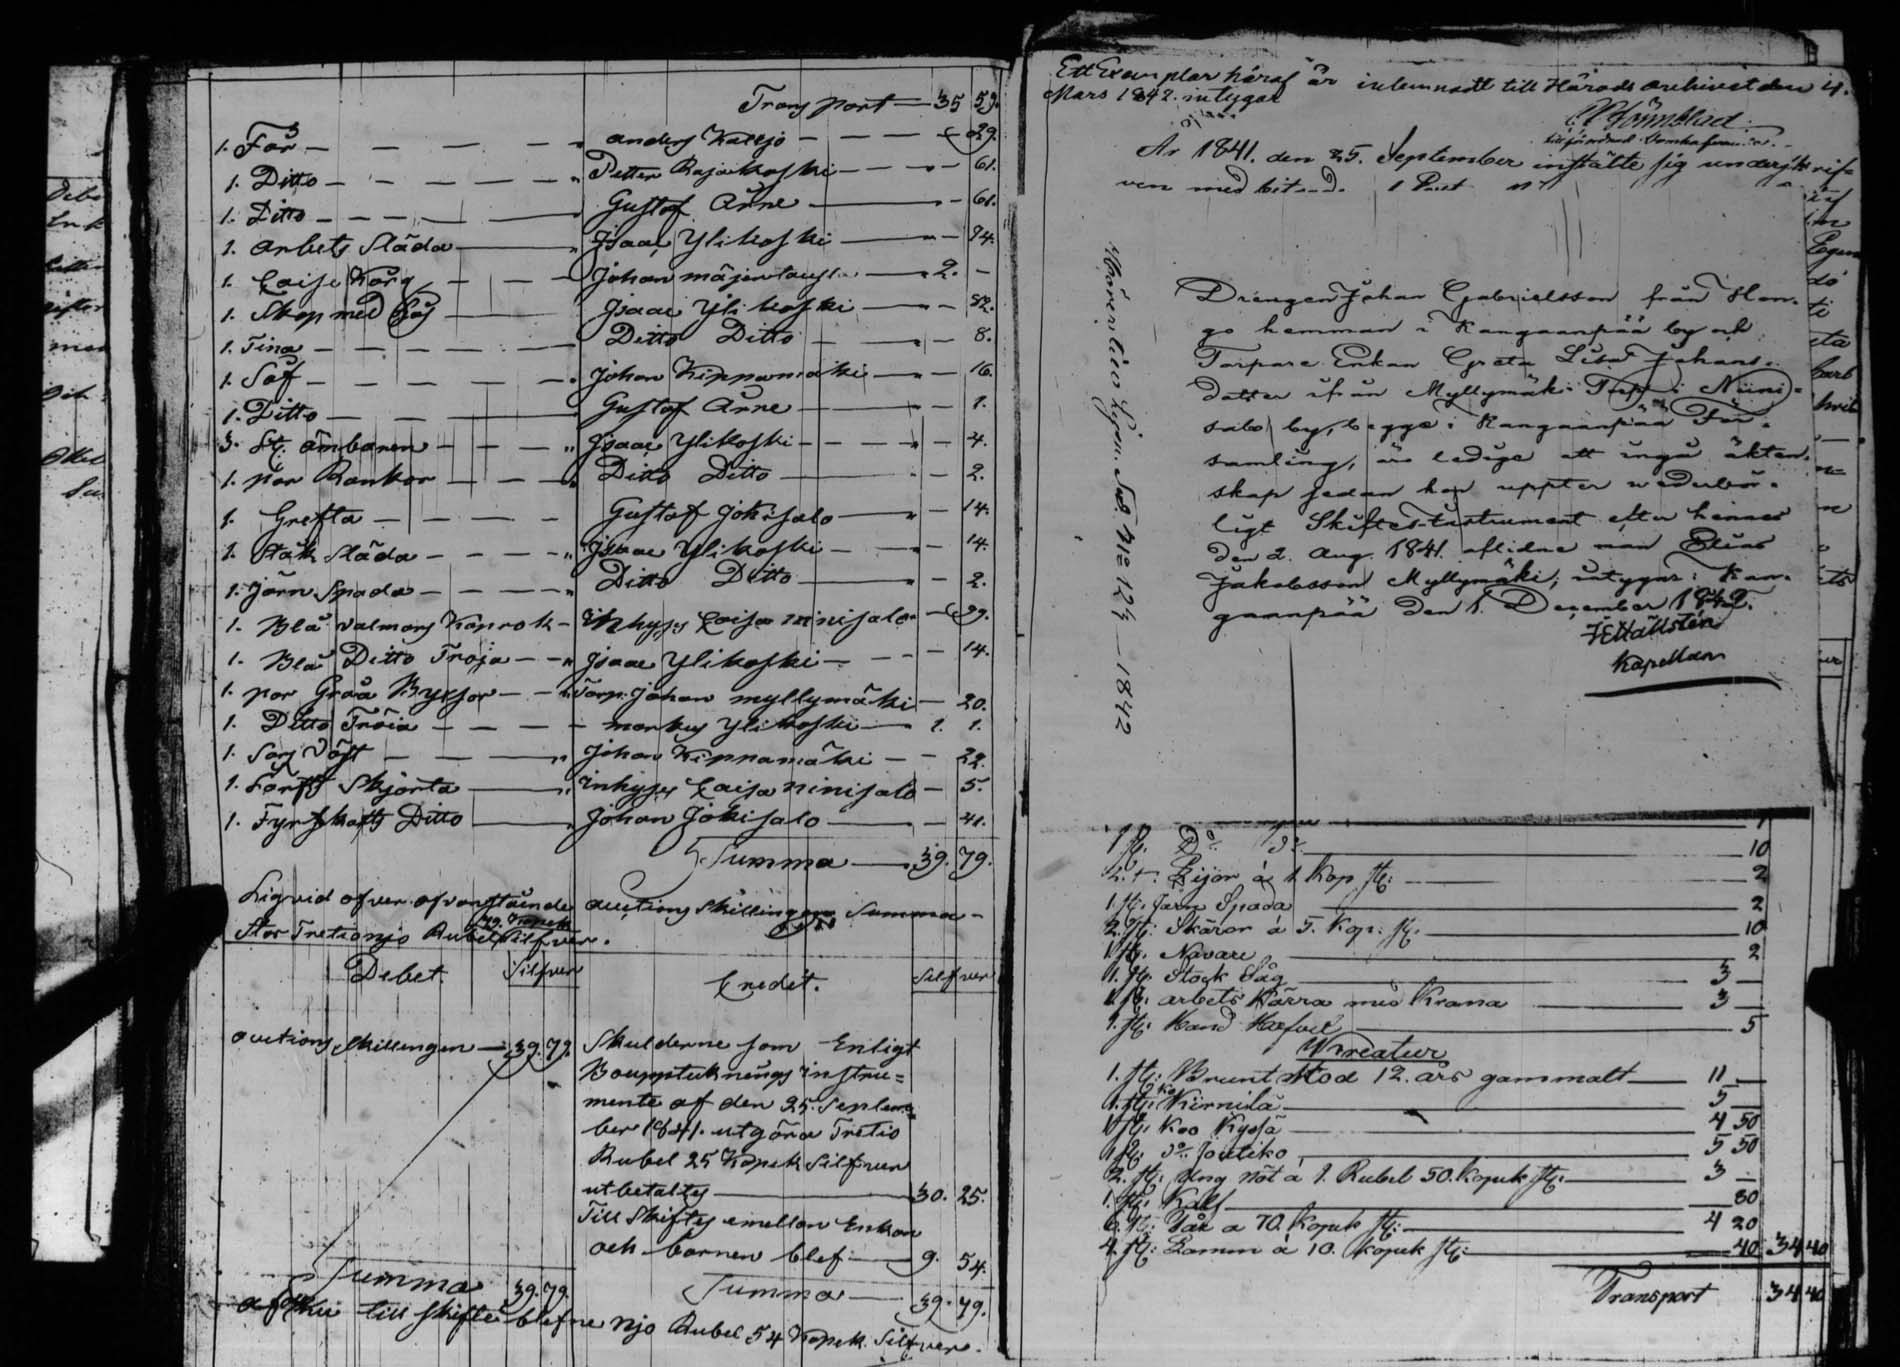 Transport — 35 59.
1. Får — — — — " Anders — — — — 29.
1. Ditto — — — — " Petter Rajakoski — — — 61.
1. Ditto — — — — Gustaf Änne — — 61.
1. Arbets Släda — " Isaac Ylikoski — " — 24.
1. Korg — — Johan — 2. —
1. Skap med — Isaac Ylikoski — " — 52.
1. Tina — — — — Ditto Ditto — — 8.
1. — — — — " Johan Kippamäki — " — 16.
1. Ditto — — Gustaf Änne — — 1.
3. St. ämbaren — — — " Isaac Ylikoski — — — 4.
1. par Bankor — — — Ditto Ditto — 2.
1. Grefta — — — — Gustaf Jokisalo — " — 14.
1. Stäk Släda — — — " Isaac Ylikoski — — 14.
1. Järn Spada — — — — Ditto Ditto — " — 2.
1. Blå valmars Kaprok — Inhyses Caisa Ninisalo — 99.
1. Blå Ditto Tröja — — " Isaac Ylikoski — — — 14.
1. par Gråa Byxor — — Torp. Johan Myllymäki — 20.
1. Ditto Tröia — — — — Markus Ylikoski — 1. 1.
1. Väst — — — " Johan Kippamäki — — 22.
1. Skjorta — " Inhyses Caisa Ninisalo — 5.
1. Fyrskafts Ditto — " Johan Jokisalo — — 41.
Summa — 39. 79.
Liqvid öfver ofvanstående auctions Skillingen Summa —
Stor Tretionjo Rubel 79. Kopek Silfver.
Debet. Silfver Credit. Silfver
auctions Skillingen — 39. 79. Skulderne som Enligt
Bouppteknings instru=
mente af den 25. Septem=
ber 1841. utgöra Tretio
Rubel 25 Kopek Silfver
utbetaltes — 30. 25.
Till Skiftes emellan Enkan
och barnen blef — 9. 54.
Summa 39. 79. Summa — 39. 79.
till skifte blefne Njo Rubel 54 Kopek Silfver.
Ett Exemplar häraf är inlemnadt till Härads Archivet den 4.
Mars 1842. intygar
År 1841. den 25. September inställte sig underskrif=
ven med
Inventarie Lgn. No 124 — 1842
Drengen Johan Gabrielsson från Hon=
go hemman i Kangaanpää by och
Torpare Enkan Greta Lisa Johans=
dotter ifrån Myllymäki Torp i Niini=
salo by, begge i Kangaanpää För=
samling, äro ledige att ingå äkten=
skap sedan hon uppter wederbör=
ligt Skiftes-Instrument efter hennes
den 2. Aug. 1841. aflidne man Elias
Jakobsson Myllymäki, intygar: Kan=
gaanpää den 1. December 1842.
Kapellan
1 St. Do. Do. — 10
2. St. Lijor á 1 Kop St: — 2
1. St. Järn Spada — 2
2. St: Skäror á 5. Kop: St. — 10
1. St. Navare — 2
1. St. Stock Såg — 3 —
1. St: arbets Kärra med Krana — 3 —
1. St: Hand — 5
Kreatur
1. St: Brunt Stod 12. års gammalt — 11 —
1. St: ko Kirnilä — 5 —
1. St: Koo Kyöjä — 4 50
1 St. do. — 5 50
2. St: Ung Nöt á 1. Rubel 50. Kopek St: — 3 —
1. St: Kalf — 80
6. St: Får a 70. Kopek St: — 4 20
4. St: Lamm á 10. Kopek St: — 40 34 40
Transport 34 40